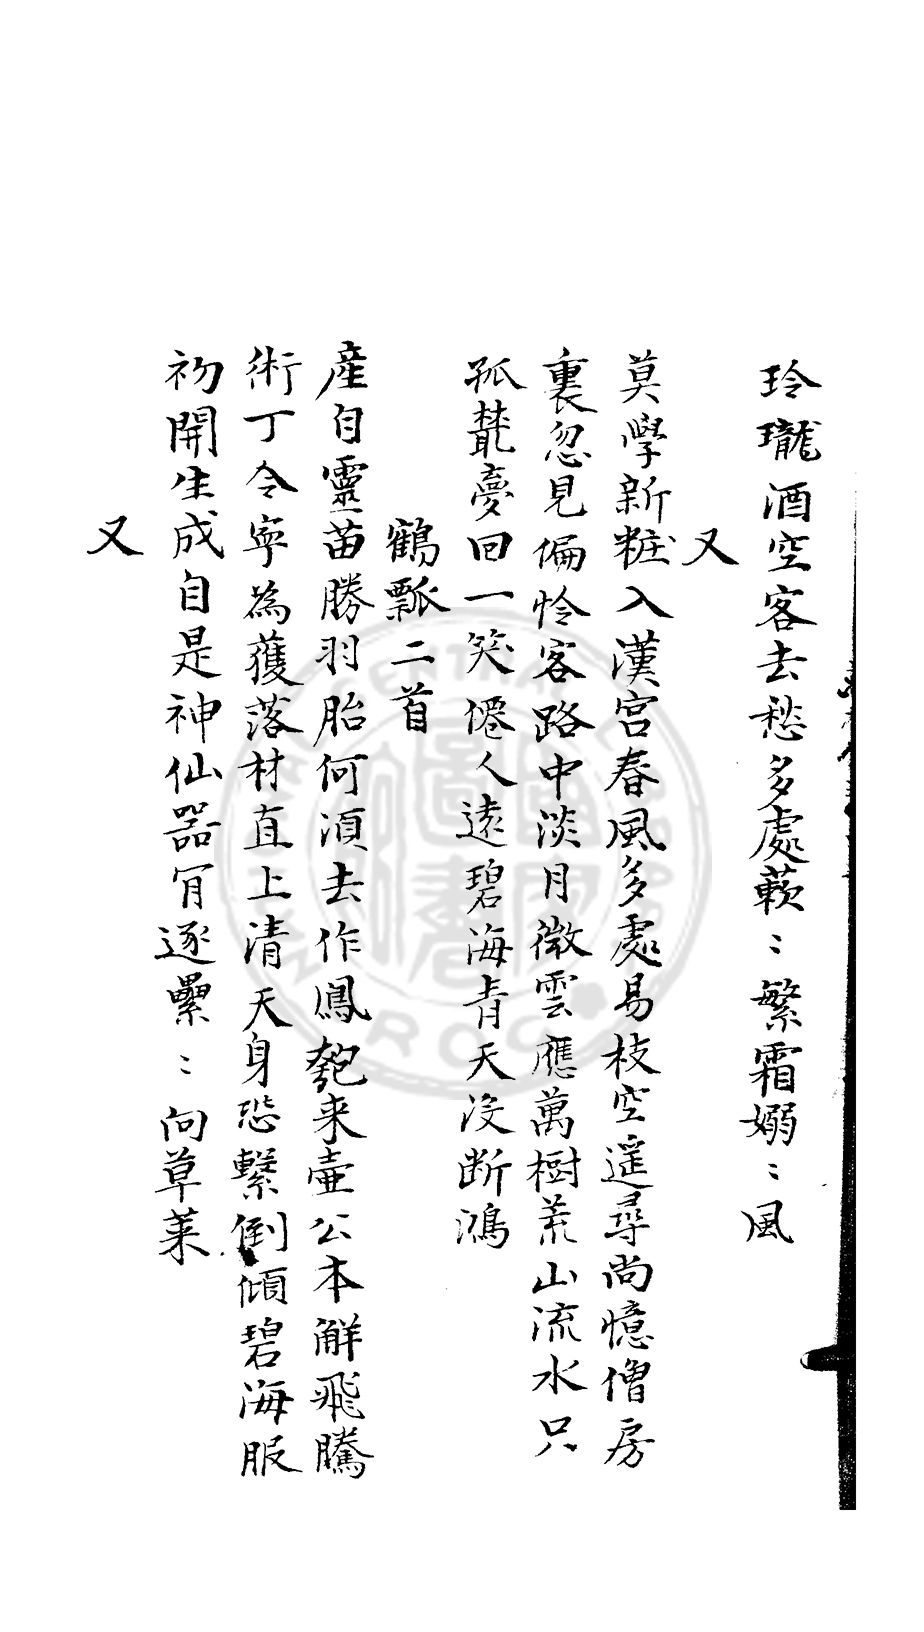 玲瓏酒空客去愁多處蔌〻繁霜嫋〻風
又
莫學新粧入漢宮春風多處易枝空遥尋尚憶僧房
裏忽見偏怜客路中淡月微雲應萬樹荒山流水只
孤蘂夢回一笑僊人遠碧海青天沒断鴻
鶴瓢二首
產自靈苗勝羽胎何湏去作鳳匏来壷公本觧飛騰
術丁令寧為蒦落材直上清天身恐繫倒傾碧海服
初開生成自是神仙器肎逐纍〻向草莱
又